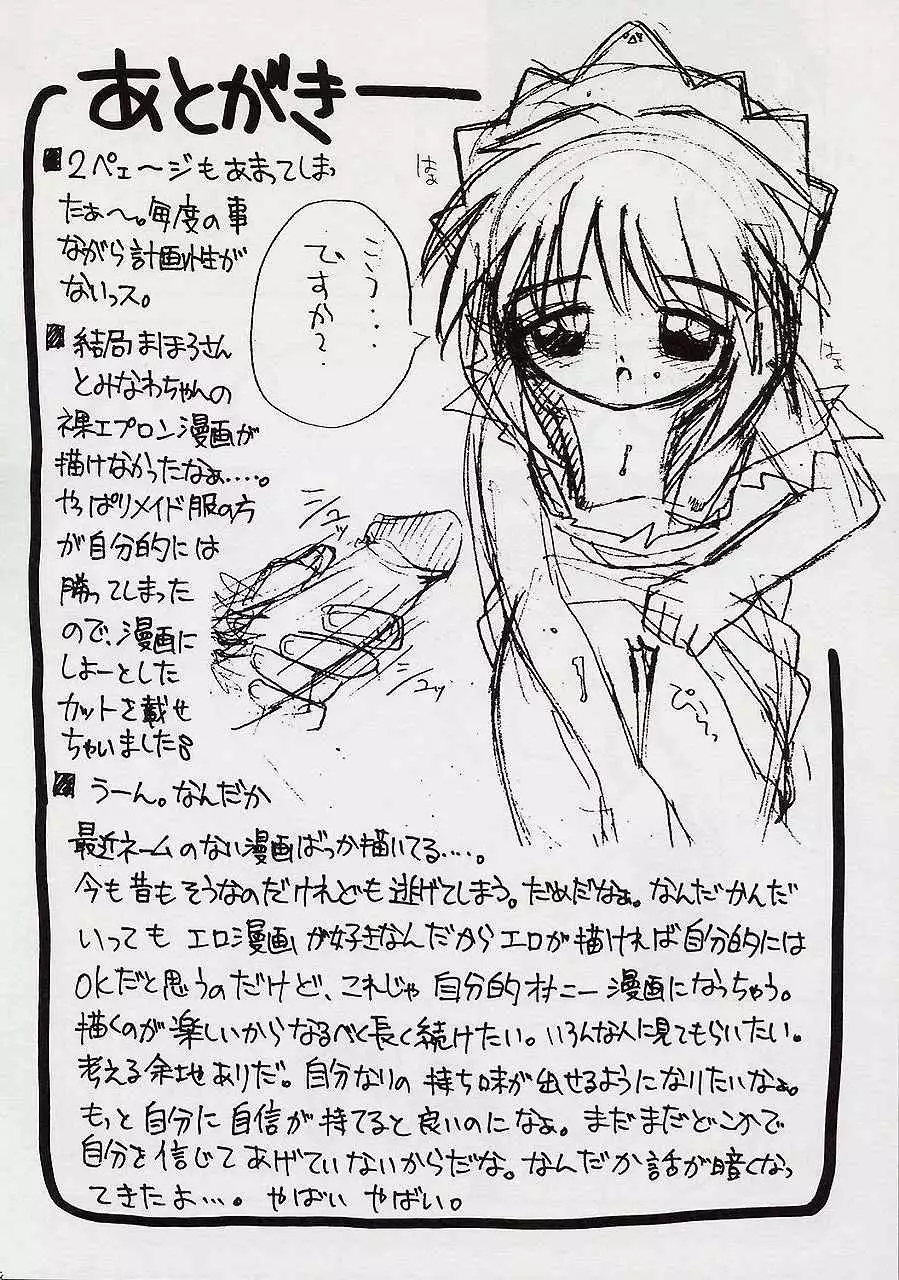 あとがき
■2ペェ〜ジもあまってしまっ
たぁ〜。毎度の事
ながら計画性が
ないっス。
■結局まほろさん
とみなわちゃんの
裸エプロン漫画が
描けなかったなぁ‥‥。
やっぱりメイド服の方
が自分的には
勝ってしまった
ので、漫画に
しよーとした
カットを載せ
ちゃいました
■うーん。なんだか
最近ネームのない漫画ばっか描いてる‥‥。
今も昔もそうなのだけれども逃げてしまう。だめだなぁ。なんだかんだ
いってもエロ漫画が好きなんだからエロが描ければ自分的には
OKだと思うのだけど、これじゃ自分的オナニー漫画になっちゃう。
描くのが楽しいからなるべく長く続けたい。いろんな人に見てもらいたい。
考える余地ありだ。自分なりの持ち味が出せるようになりたいなぁ。
もっと自分に自信が持てると良いのになぁ。まだまだどこかで
自分を信じてあげていないからだな。なんだか話が暗くなっ
てきたよ‥‥。やばいやばい。
はぁ
こう‥
ですか？
はぁ
シュッ
シュッ
ぴく